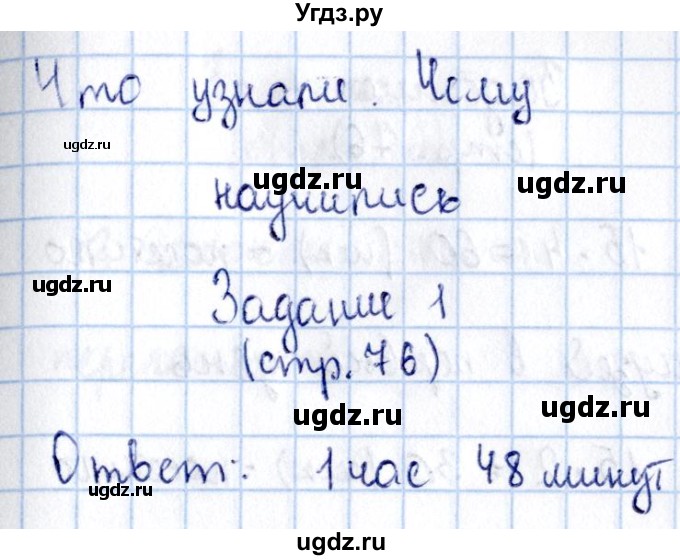 Угдз.ру
Что узнали. Чему
научились
Задание 1
(стр. 76)
Ответ: 1 час 48 минут
ugdz.ru
ugdz.ru
ugdz.ru
ugdz.ru
ugdz.ru
ugdz.ru
ugdz.ru
ugdz.ru
ugdz.ru